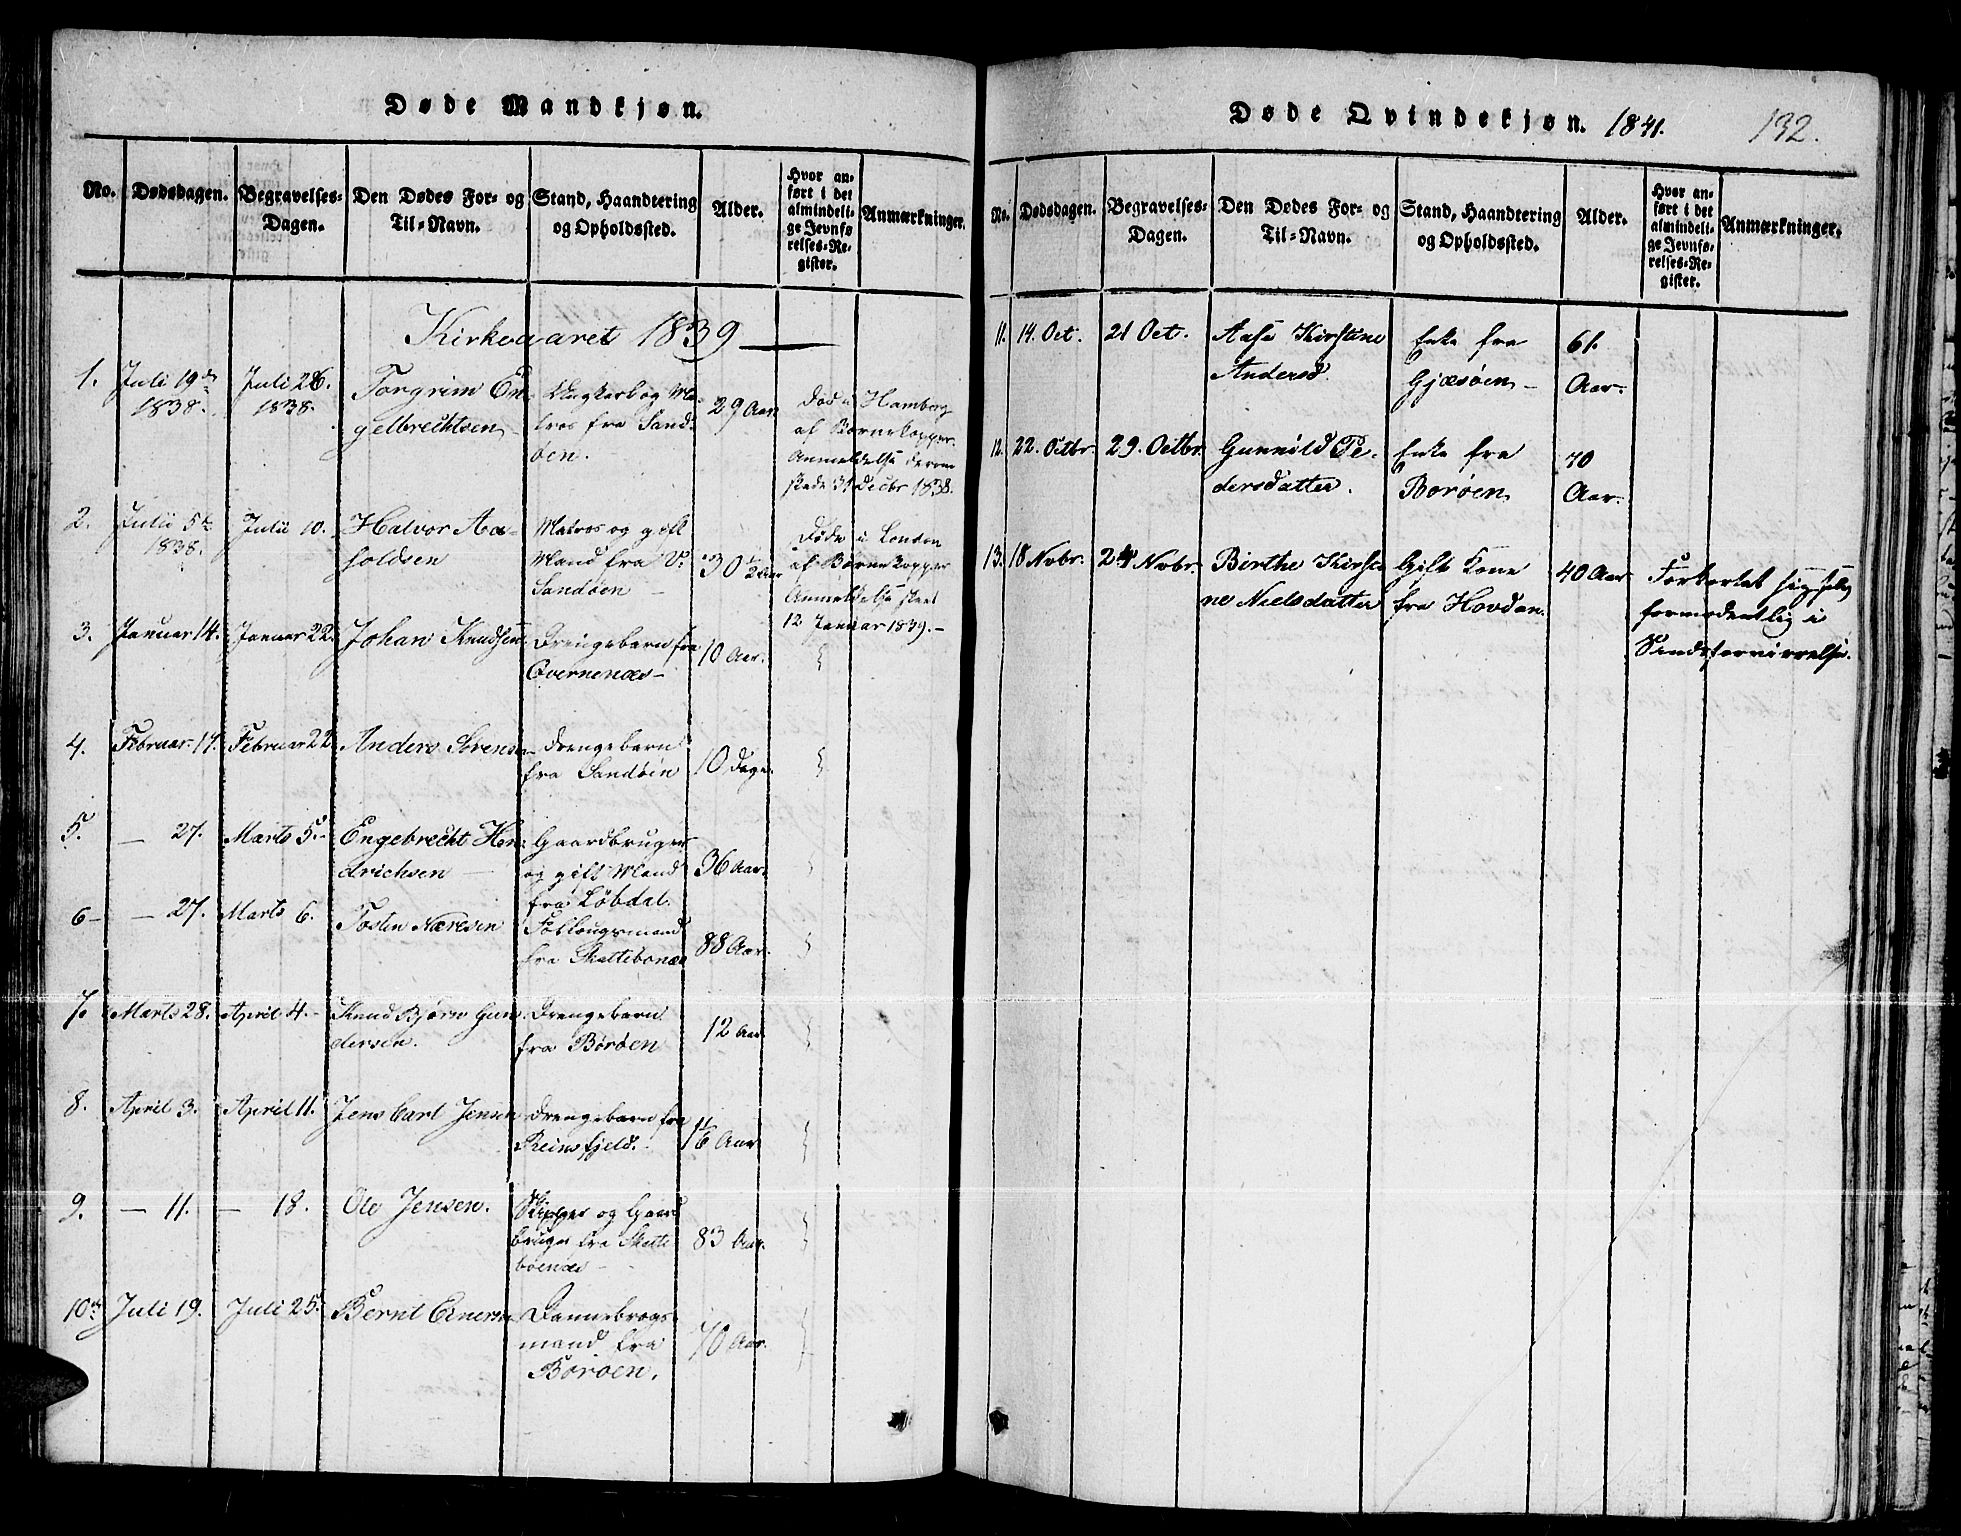 Døde Mandkjøn.
No.
Dødsdagen.
Begravelses-
Dagen.
Den Dødes For- og
Til-Navn.
Stand, Haandtering
og Opholdssted.
Alder.
Hvor an-
ført i det
almindeli-
ge Jevnfø-
relses-Re-
gister.
Anmærkninger.
Kirkeaaret 1839
1.
Juli 19de
1838.
Juli 26.
1838.
Torgrim En-
gelbrechtsen
Ungkarl og Ma-
tros fra Sand-
øen.
29 Aar
Død i Hamborg
af Børnekopper.
Anmeldelse derom
skede 31 Decbr 1838.
2.
Julii 5te
1838.
Julii 10.
Halvor Aa-
holdsen
Matros og gift
Mand fra V.
Sandøen
30 1/2 Aar
Døde i London
af Børnekopper
Anmeldelse skeet
12 Januar 1839.
3.
Januar 14.
Januar 22.
Johan Knudsen
Drengebarn fra
Qvernenæs
10 Aar.
4.
Februar 17.
Februar 22
Anders Sørensen
Drengebarn
fra Sandøen
10 Dage.
5.
— 27.
Marts 5.
Engebrecht Hen-
drichsen
Gaardbruger
og gift Mand
fra Løbdal.
36 Aar.
6
— 27.
Marts 6.
Tosten Næresen
Føllougsmand
fra Skottebonæs
88 Aar.
7.
Marts 28.
April 4.
Knud Bjørn Gun-
dersen.
Drengebarn
fra Børøen
12 Aar
8.
April 3.
April 11.
Jens Carl Jensen
Drengebarn fra
Reinsfjeld.
1 1/6 Aar
9.
— 11.
— 18.
Ole Jensen.
Skipper og Gaard
bruger fra Skotte
bøenæs
83 Aar.
10de
Juli 19.
Juli 25.
Bernt Einersen
Dannebrogs-
mand fra
Børøen.
70 Aar.
Døde Qvindekjøn. 1841.
132.
No.
Dødsdagen.
Begravelses-
Dagen.
Den Dødes For- og
Til-Navn.
Stand, Haandtering
og Opholdssted.
Alder.
Hvor an-
ført i det
almindeli-
ge Jevnfø-
relses-Re-
gister.
Anmærkninger.
11.
14. Oct.
21 Oct.
Aase Kirstine
Andersd.
Enke fra
Gjæsøen
61.
Aar.
12.
22. Octbr.
29. Octbr.
Gunnild Pe-
dersdatter.
Enke fra
Borøen
70
Aar.
13.
18 Novbr.
24 Novbr.
Birthe Kirsti
ne Nielsdatter
Gift Kone
fra Hovdan.
40 Aar
Forkortet sig selv
formodentlig i
Sindsforvirrelse.